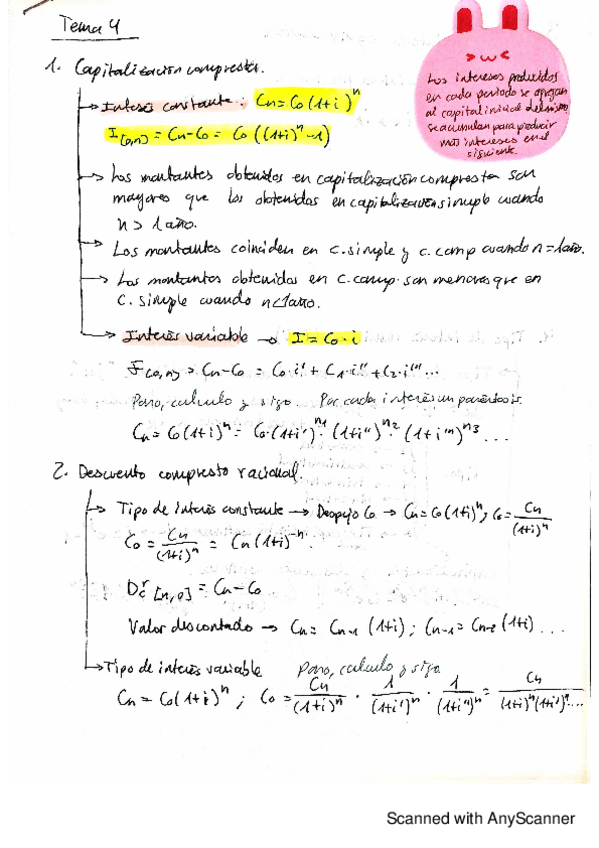 Tema 4
1. Capitalización compuesta.
> w <
Los intereses producidos
en cada periodo se agregan
al capital inicial del mismo,
se acumulan para producir
más intereses en el
siguiente.
→ Interés constante: Cn = C0 (1+i)^n
I[0,n] = Cn-C0 = C0 ((1+i)^n - 1)
→ Los montantes obtenidos en capitalización compuesta son
mayores que los obtenidos en capitalización simple cuando
n > 1 año.
→ Los montantes coinciden en c. simple y c. comp cuando n = 1 año.
→ Los montantes obtenidos en c. comp. son menores que en
c. simple cuando n < 1 año.
→ Interés variable → I = C0 · i
I(0,n) = Cn-C0 = C0·i' + C1·i'' + C2·i'''...
Paro, calculo y sigo. Por cada interés un paréntesis.
Cn = C0 (1+i)^n = C0·(1+i')^n1 · (1+i'')^n2 · (1+i''')^n3 ...
2. Descuento compuesto racional.
→ Tipo de interés constante → Despejo C0 → Cn = C0 (1+i)^n; C0 = Cn/(1+i)^n
C0 = Cn/(1+i)^n = Cn (1+i)^-n.
D^r_c [n,0] = Cn - C0
Valor descontado → Cn = Cn-1 (1+i); Cn-1 = Cn-2 (1+i) ...
→ Tipo de interés variable Paro, calculo y sigo
Cn = C0 (1+i)^n; C0 = Cn/(1+i)^n · 1/(1+i')^n · 1/(1+i'')^n = Cn/(1+i)^n(1+i')^n....
Scanned with AnyScanner